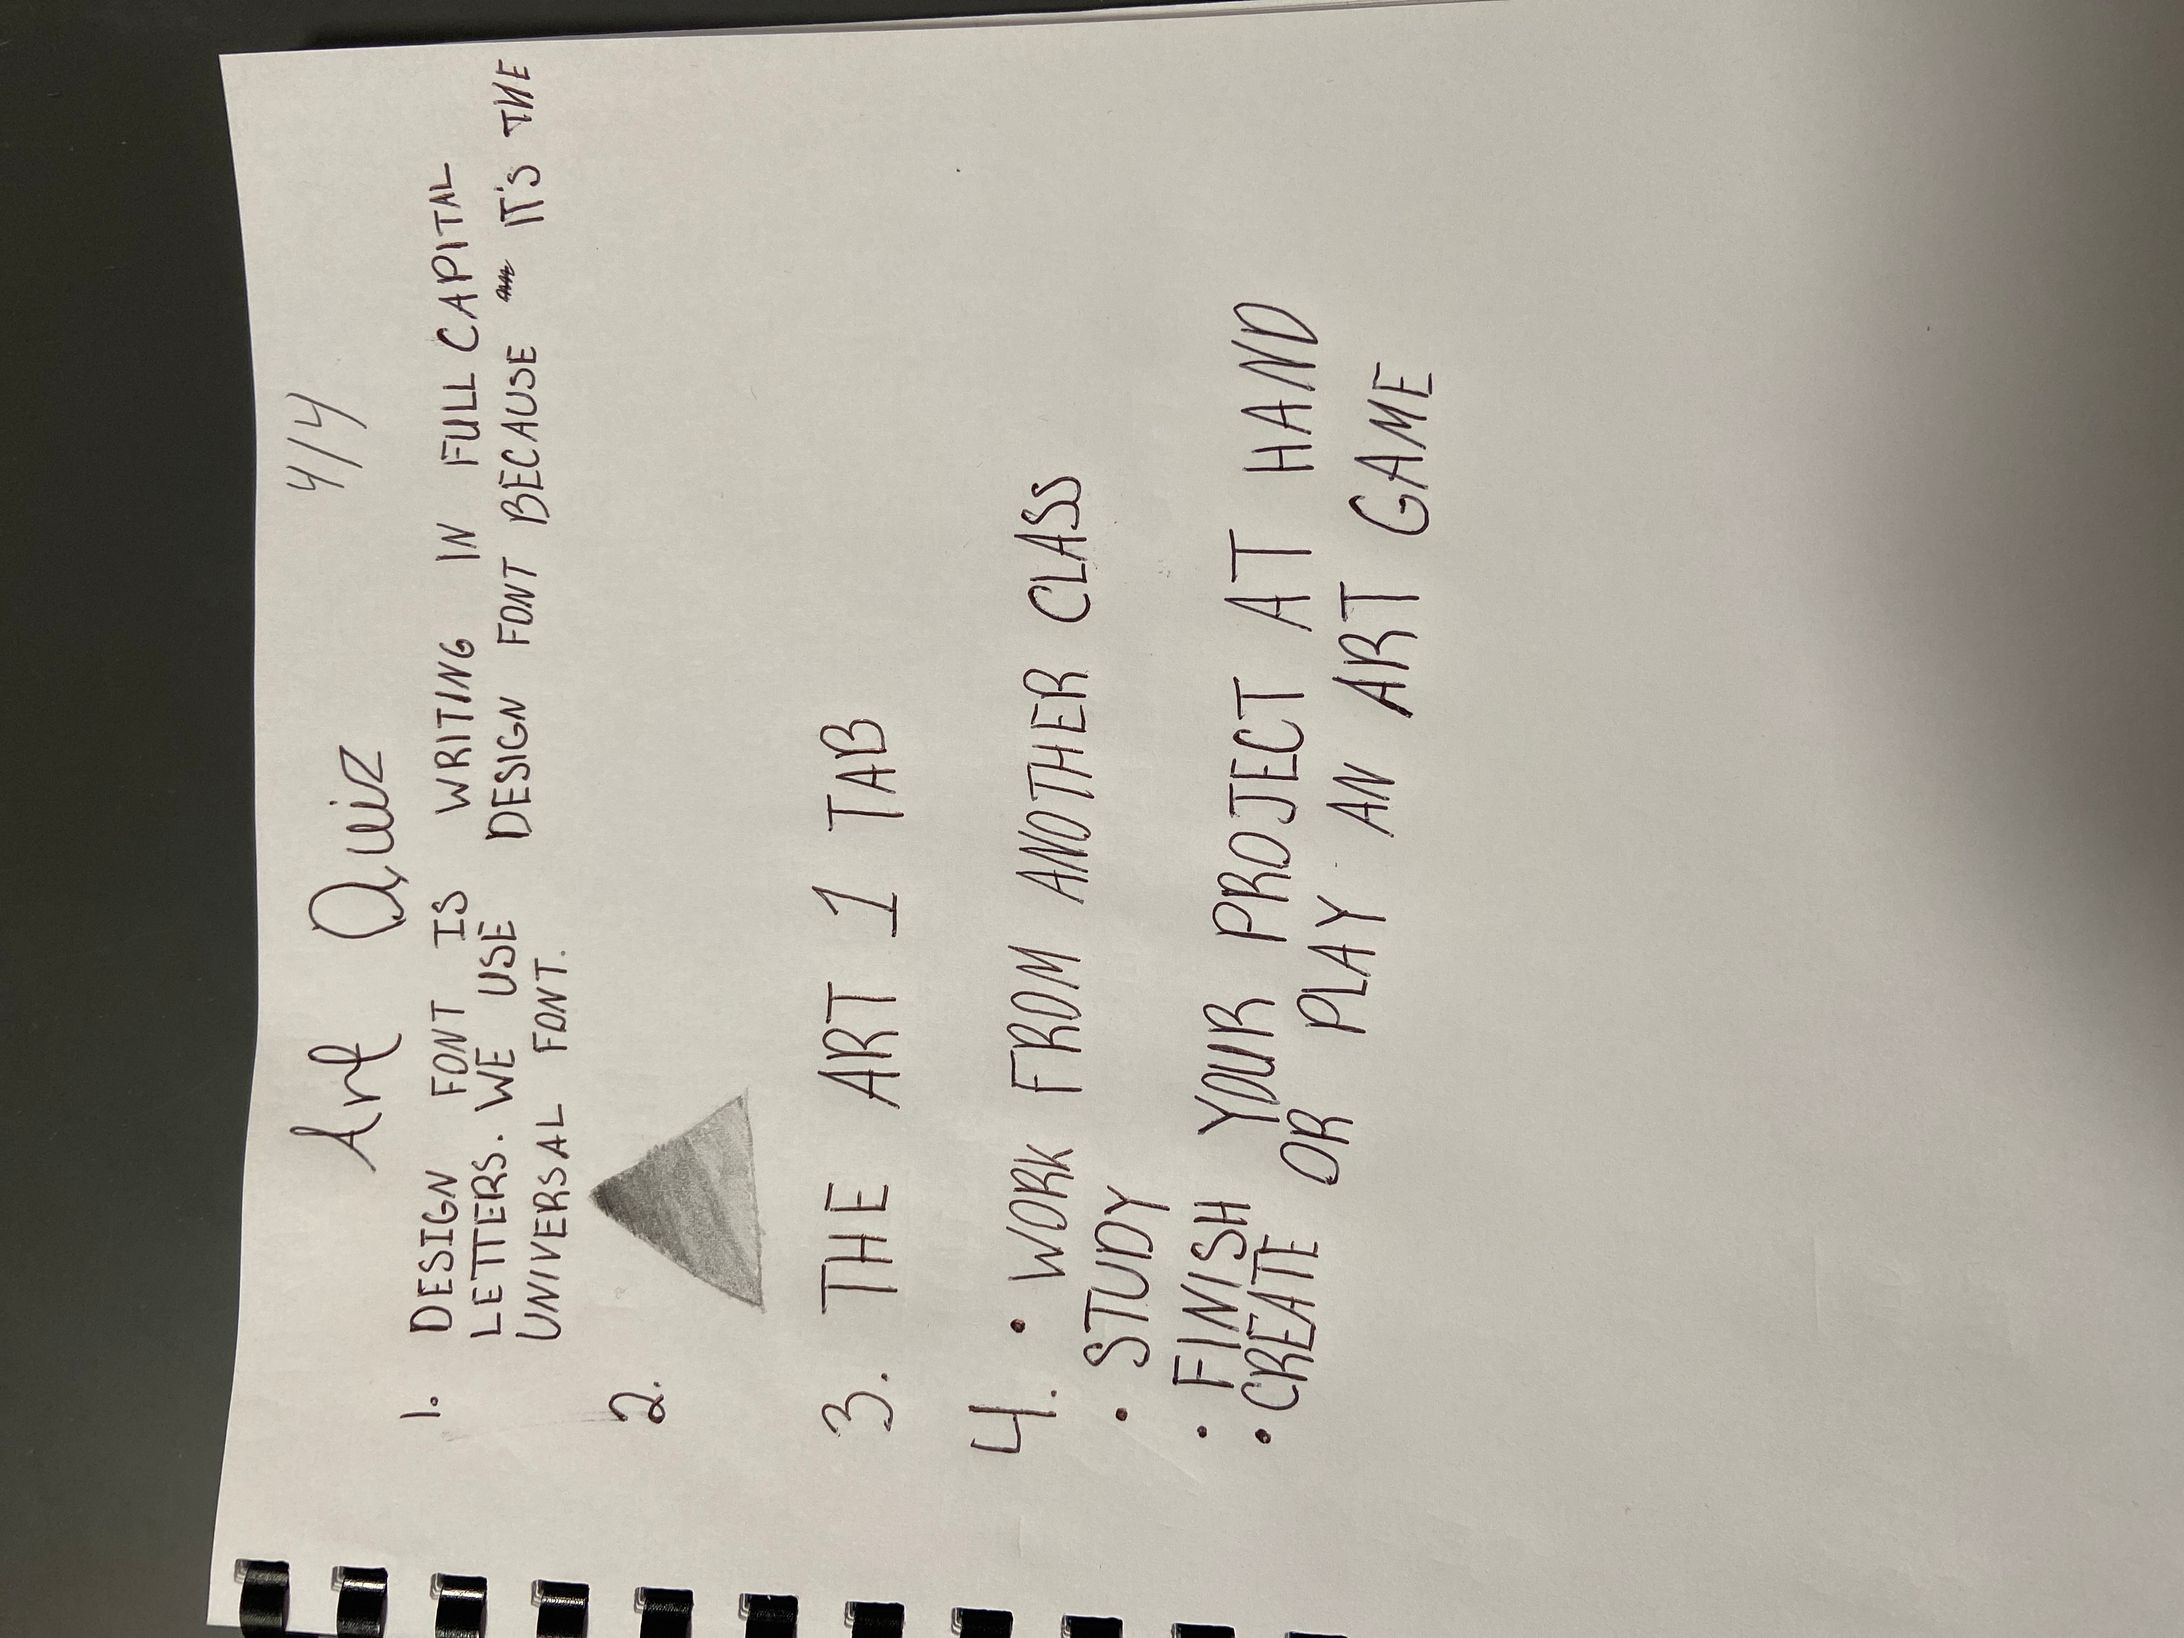 Art Quiz 4/4
1. DESIGN FONT IS WRITING IN FULL CAPITAL
LETTERS. WE USE DESIGN FONT BECAUSE IT'S THE
UNIVERSAL FONT.
2.
3. THE ART 1 TAB
4. • WORK FROM ANOTHER CLASS
• STUDY
• FINISH YOUR PROJECT AT HAND
• CREATE OR PLAY AN ART GAME